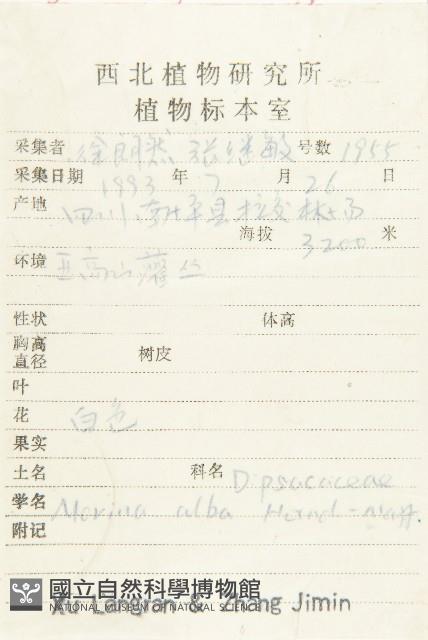 西北植物研究所
植物标本室
采集者 徐朗然 张继敏 号数 1955
采集日期 1993 年 7 月 26 日
产地 四川 县 林场
海拔 3200 米
环境 亚高山灌丛
性状 体高
胸高直径 树皮
叶
花 白色
果实
土名 科名 Dipsacaceae
学名 Morina alba Hand-Mazz.
附记
國立自然科學博物館
NATIONAL MUSEUM OF NATURAL SCIENCE
Xu Langran & Zhang Jimin